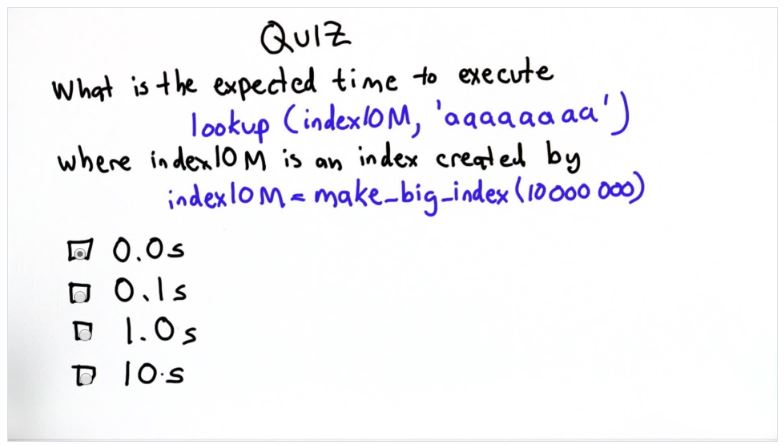 QUIZ
What is the expected time to execute
lookup (index10M, 'aaaaaaaa')
where index10M is an index created by
index10M = make_big_index(10000 000)
0.0s
0.1s
1.0s
10.s